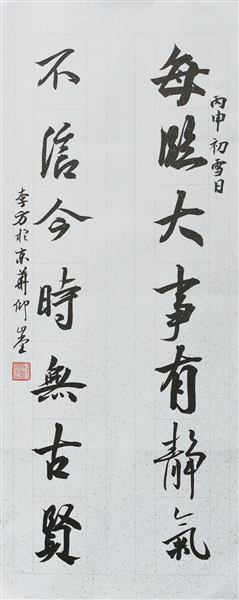 每臨大事有靜氣
丙申初雪日
不信今時無古賢
李方於京華仰山堂